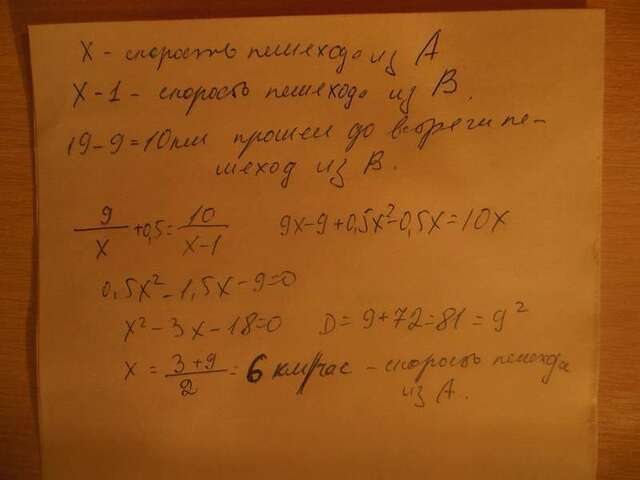 x - скорость пешехода из A
x-1 - скорость пешехода из B.
19-9=10км прошел до встречи пе-
шеход из B.
9/x +0,5= 10/x-1 9x-9+0,5x²-0,5x=10x
0,5x²-1,5x-9=0
x²-3x-18=0 D=9+72=81=9²
x = 3+9/2 = 6 км/час - скорость пешехода
из A.